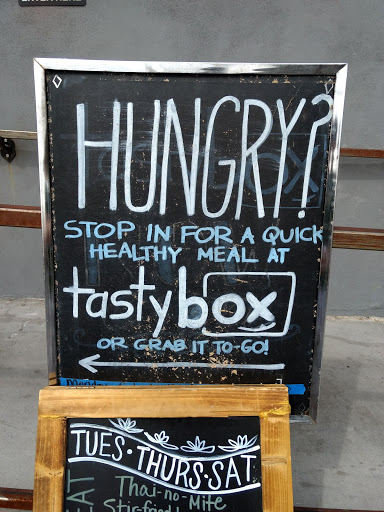 HUNGRY?
STOP IN FOR A QUICK
HEALTHY MEAL AT
tastybox
OR GRAB IT TO-GO!
TUES · THURS · SAT
Thai-no-Mite
Stir-fried